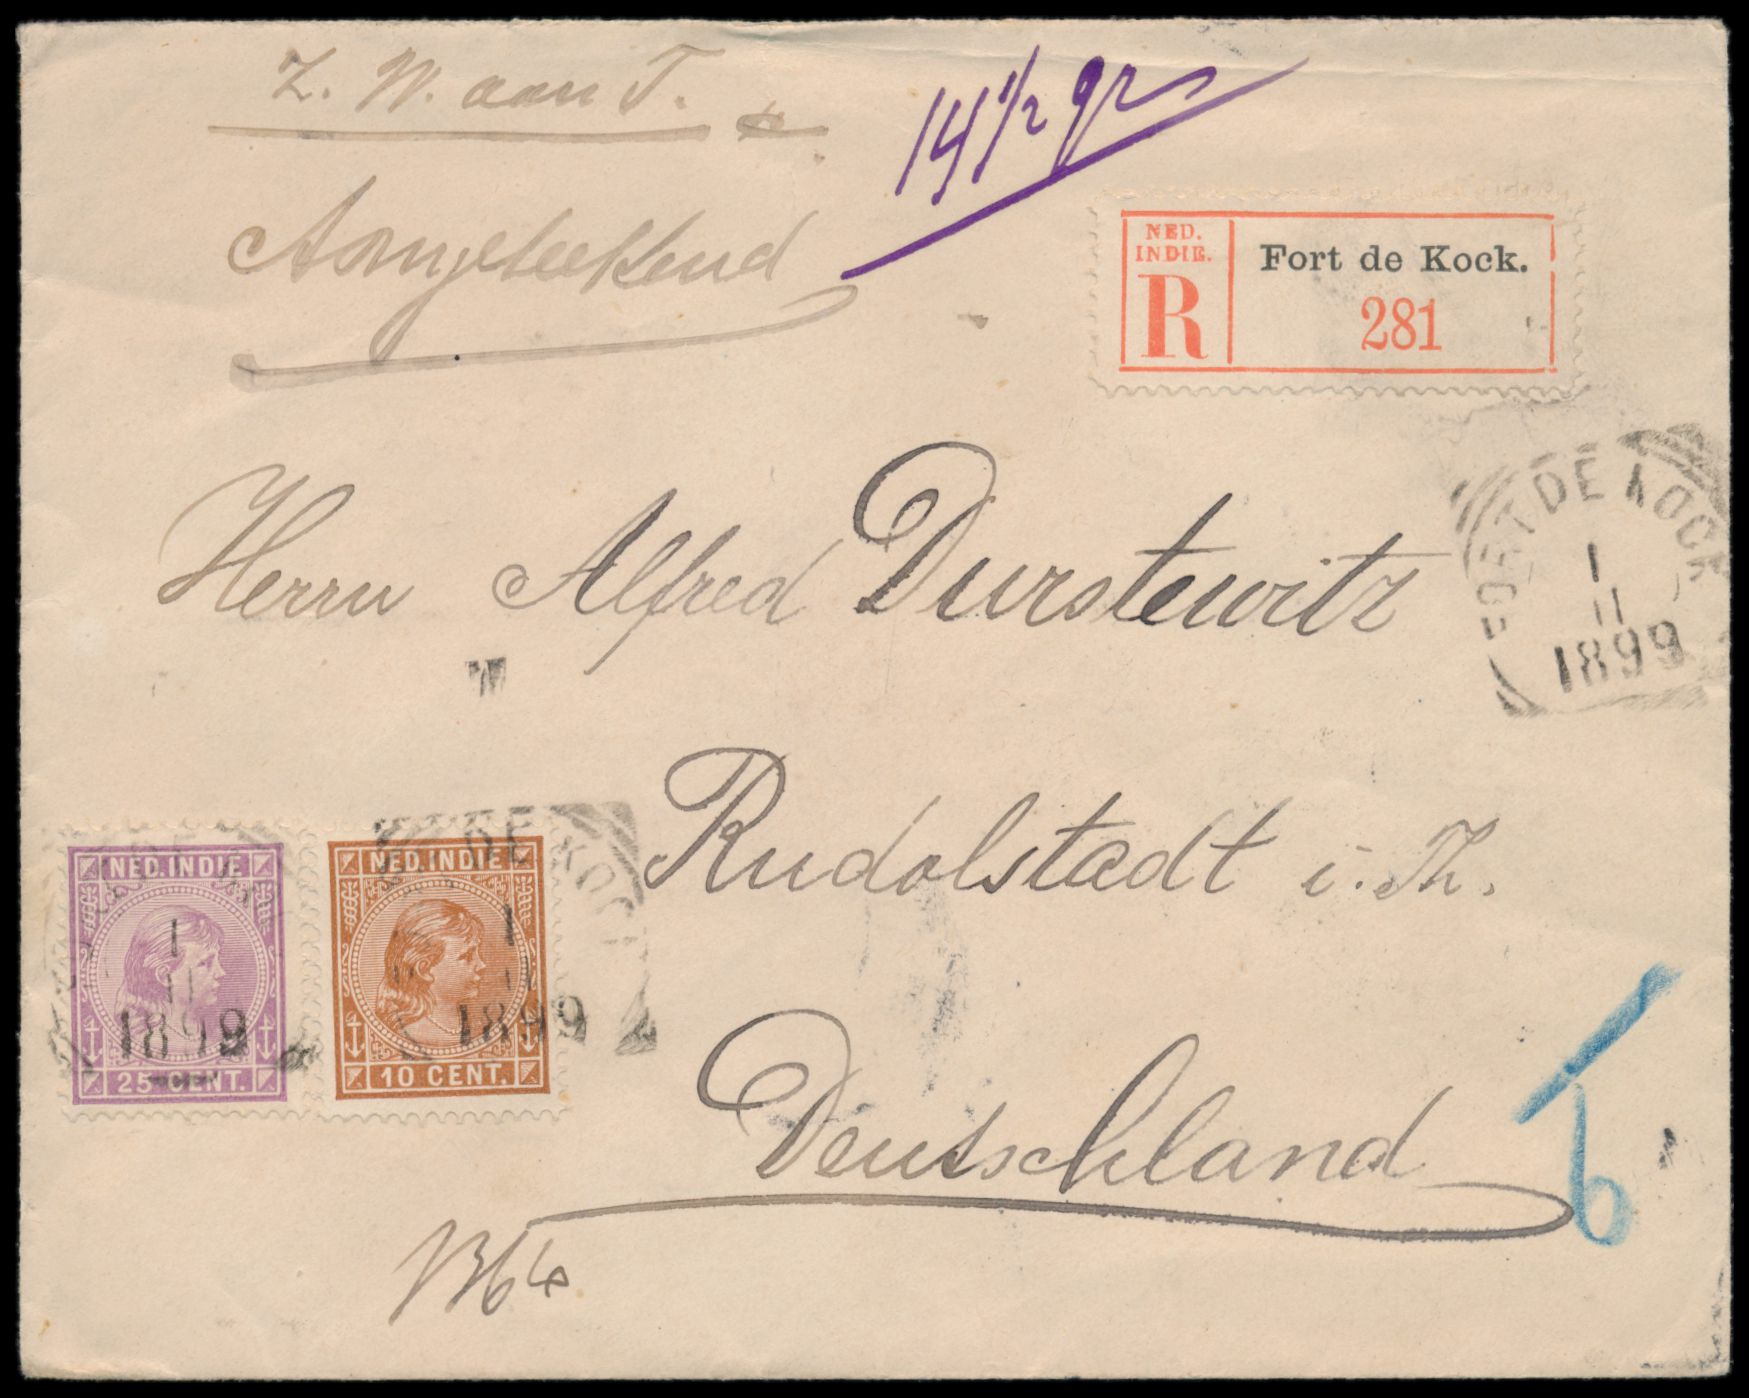 Z. W. aan T.
14 1/2 gr
Aangeteekend
NED.
INDIE.
R
Fort de Kock.
281
FORT DE KOCK
1
11
1899
Herrn Alfred Durstewitz
Rudolstadt i. Th.
Deutschland
NED. INDIE
25 CENT.
1
11
1899
NED. INDIE
10 CENT.
DE KOCK
1
11
1899
6